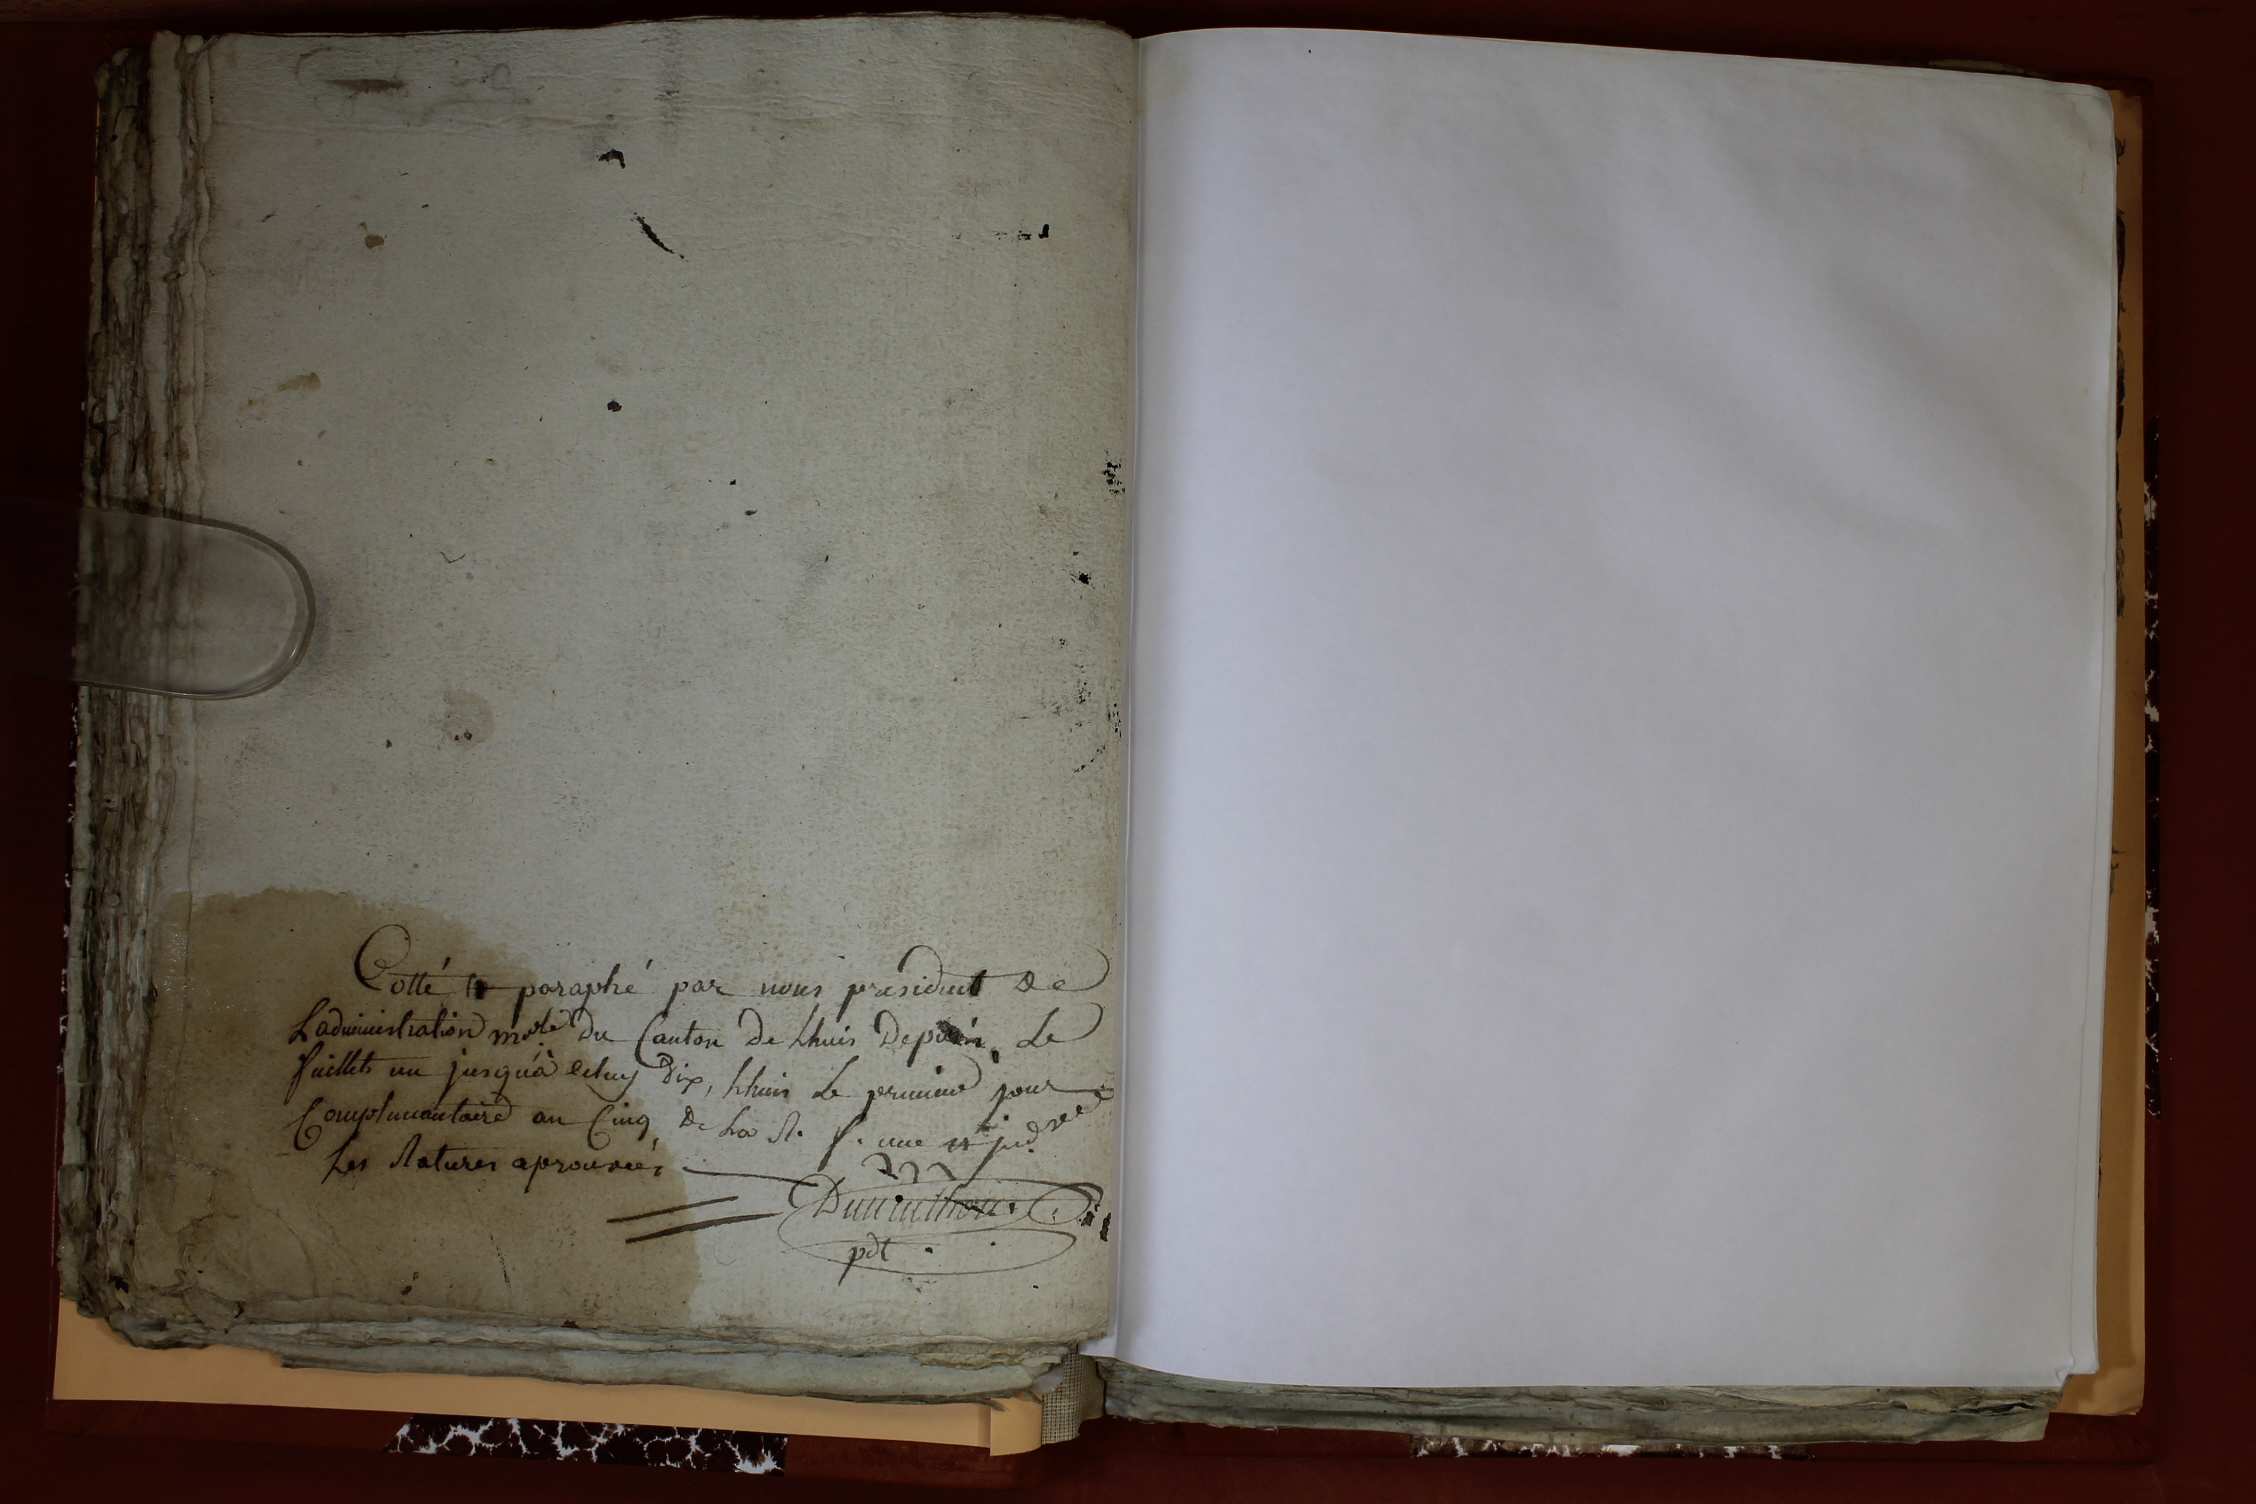 Cotté et paraphé par nous president de
Ladministration mple du Canton de Lhuis Depuis Le
fuillets un jusqu'a Celuy Dix, Lhuis Le premier jour
Complemantaire an Cinq de La R. f. une et ind
Les Ratures aprouvées
pdt